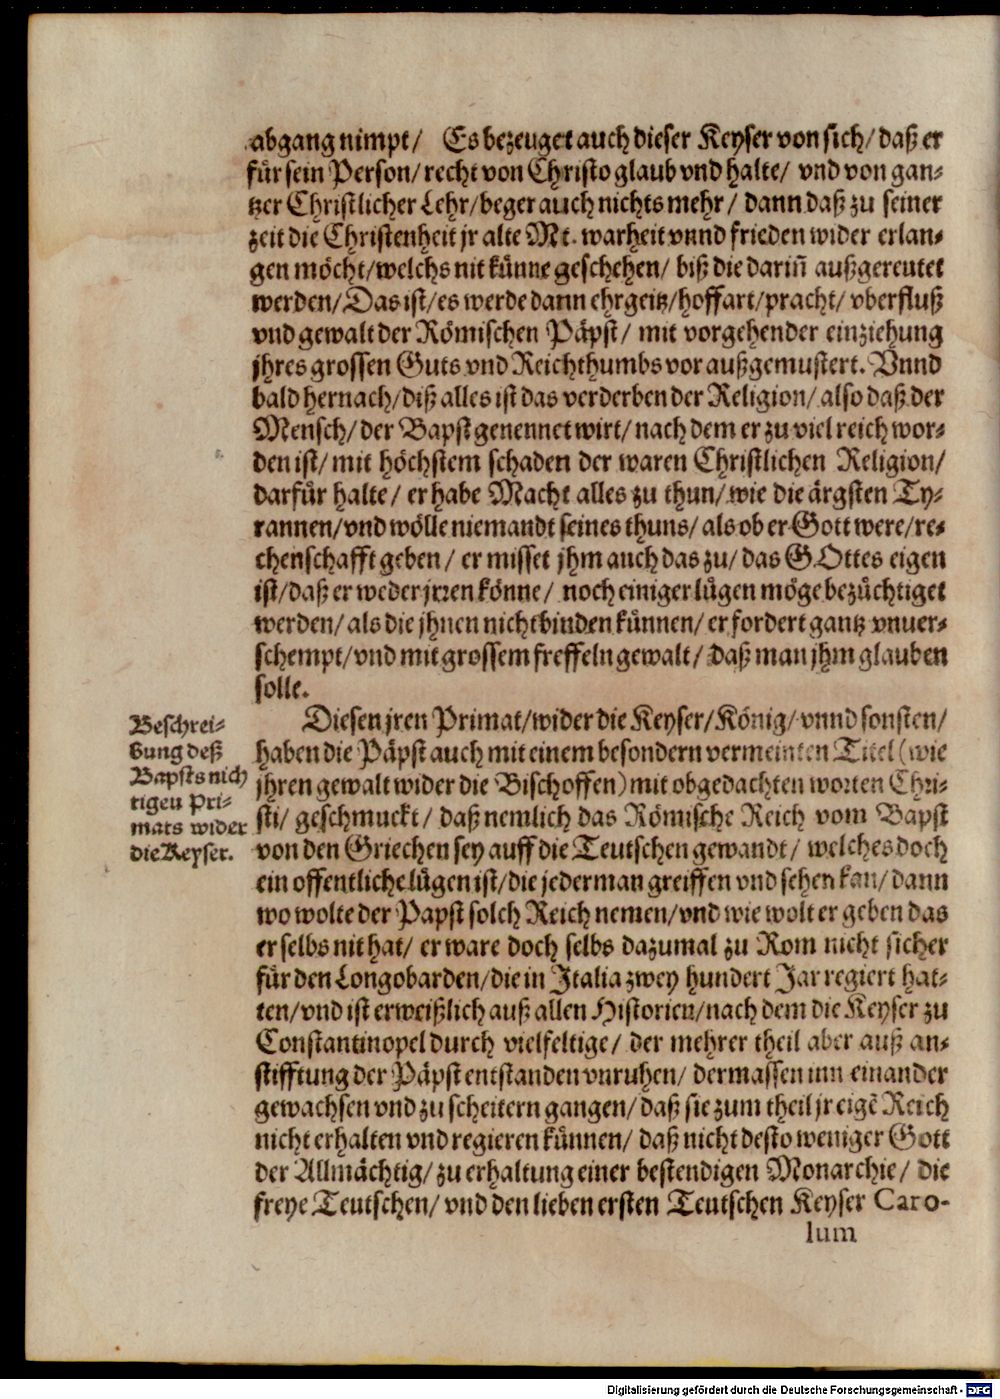 abgang nimpt/ Es bezeuget auch dieser Keyser von sich/ daß er
für sein Person/ recht von Christo glaub vnd halte/ vnd von gan-
tzer Christlicher Lehr/ beger auch nichts mehr/ dann daß zu seiner
zeit die Christenheit jr alte Mt. warheit vnnd frieden wider erlan-
gen möcht/ welchs nit künne geschehen/ biß die dariñ außgereutet
werden/ Das ist/ es werde dann ehrgeitz/ hoffart/ pracht/ vberfluß
vnd gewalt der Römischen Päpst/ mit vorgehender einziehung
jhres grossen Guts vnd Reichthumbs vor außgemustert. Vnnd
bald hernach/ diß alles ist das verderben der Religion/ also daß der
Mensch/ der Bapst genennet wirt/ nach dem er zu viel reich wor-
den ist/ mit höchstem schaden der waren Christlichen Religion/
darfür halte/ er habe Macht alles zu thun/ wie die ärgsten Ty-
rannen/ vnd wölle niemandt seines thuns/ als ob er Gott were/ re-
chenschafft geben/ er misset jhm auch das zu/ das GOttes eigen
ist/ daß er weder jrren könne/ noch einiger lügen möge bezüchtiget
werden/ als die jhnen nicht binden künnen/ er fordert gantz vnuer-
schempt/ vnd mit grossem freffeln gewalt/ daß man jhm glauben
solle.
Beschrei-
bung deß
Bapsts nich
tigen Pri-
mats wider
die Keyser.
Diesen jren Primat/ wider die Keyser/ König/ vnnd sonsten/
haben die Päpst auch mit einem besondern vermeinten Titel (wie
jhren gewalt wider die Bischoffen) mit obgedachten worten Chri-
sti/ geschmuckt/ daß nemlich das Römische Reich vom Bapst
von den Griechen sey auff die Teutschen gewandt/ welches doch
ein offentliche lügen ist/ die jederman greiffen vnd sehen kan/ dann
wo wolte der Papst solch Reich nemen/ vnd wie wolt er geben das
er selbs nit hat/ er ware doch selbs dazumal zu Rom nicht sicher
für den Longobarden/ die in Italia zwey hundert Jar regiert hat-
ten/ vnd ist erweißlich auß allen Historien/ nach dem die Keyser zu
Constantinopel durch vielfeltige/ der mehrer theil aber auß an-
stifftung der Päpst entstanden vnruhen/ dermassen inn einander
gewachsen vnd zu scheitern gangen/ daß sie zum theil jr eigẽ Reich
nicht erhalten vnd regieren künnen/ daß nicht desto weniger Gott
der Allmächtig/ zu erhaltung einer bestendigen Monarchie/ die
freye Teutschen/ vnd den lieben ersten Teutschen Keyser Caro-
lum
Digitalisierung gefördert durch die Deutsche Forschungsgemeinschaft - DFG